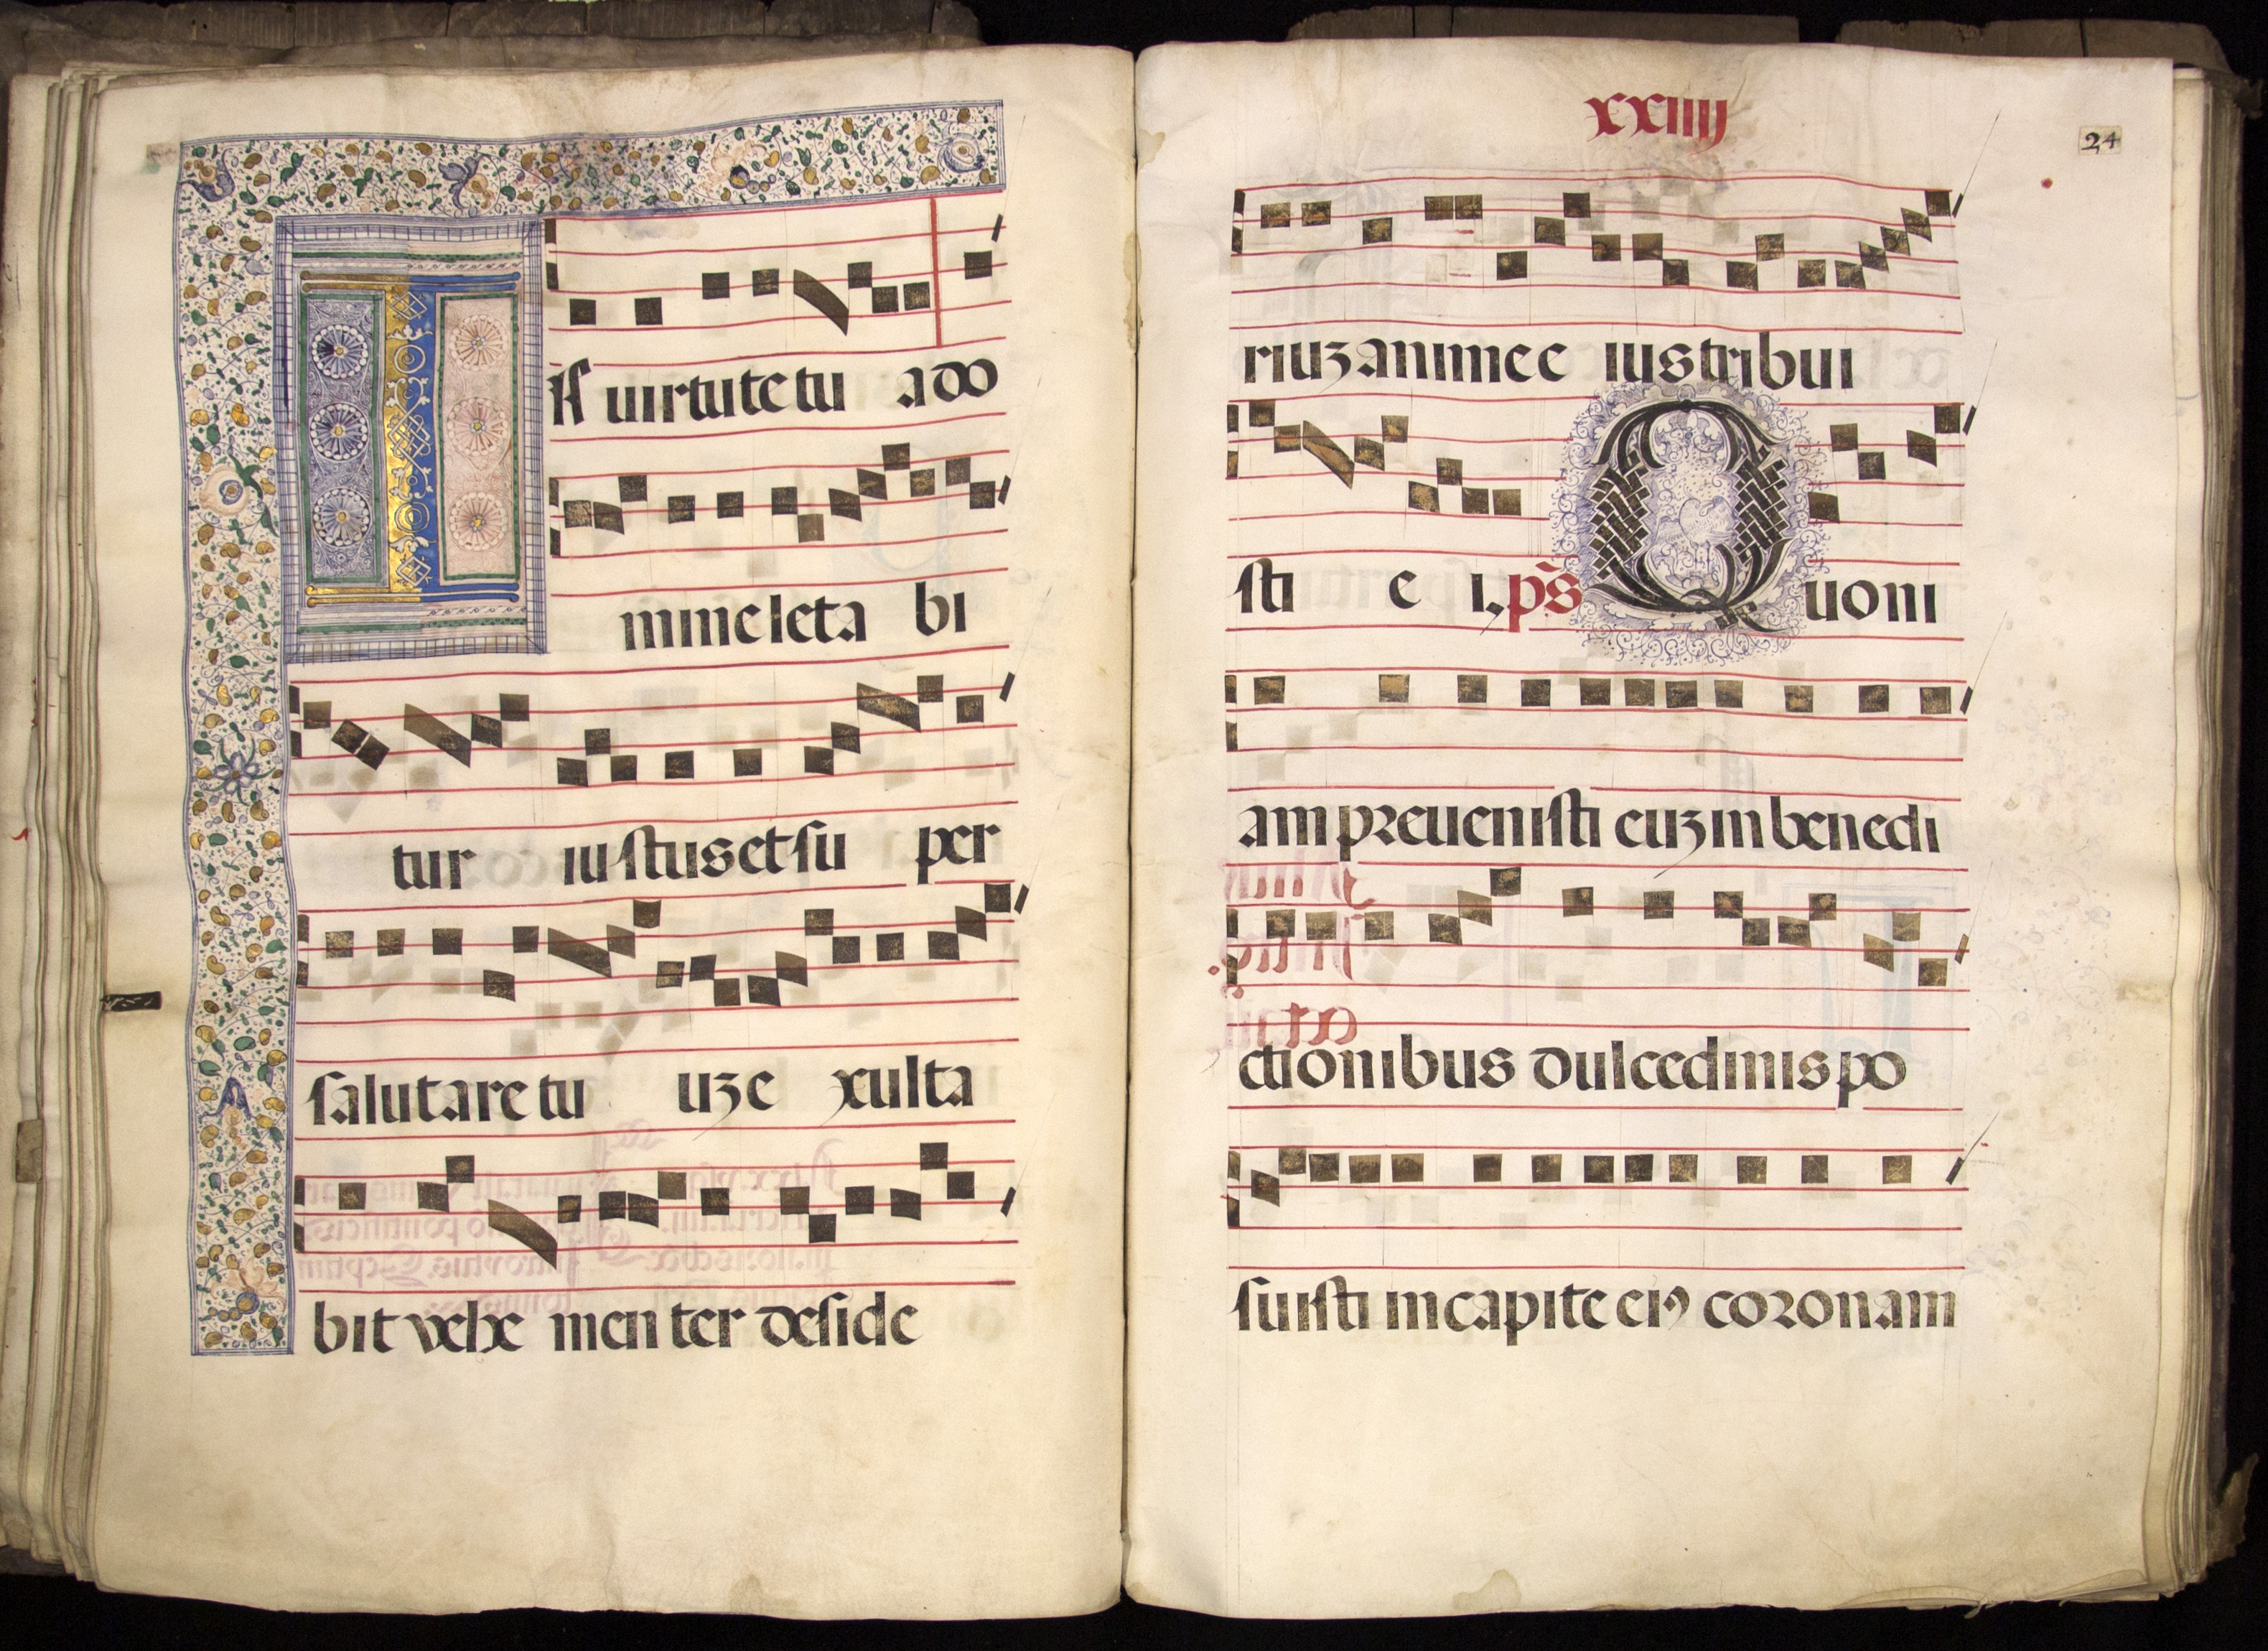 IN uirtute tu a do
mine leta bi
tur iustus et su per
salutare tu uz e xulta
bit vehe menter deside
XXIIIJ
24
riuz anime e ius tribui
sti e i, ps Quoni
am preuenisti euz in benedi
ctionibus dulcedinis po
suisti in capite eiꝰ coronam